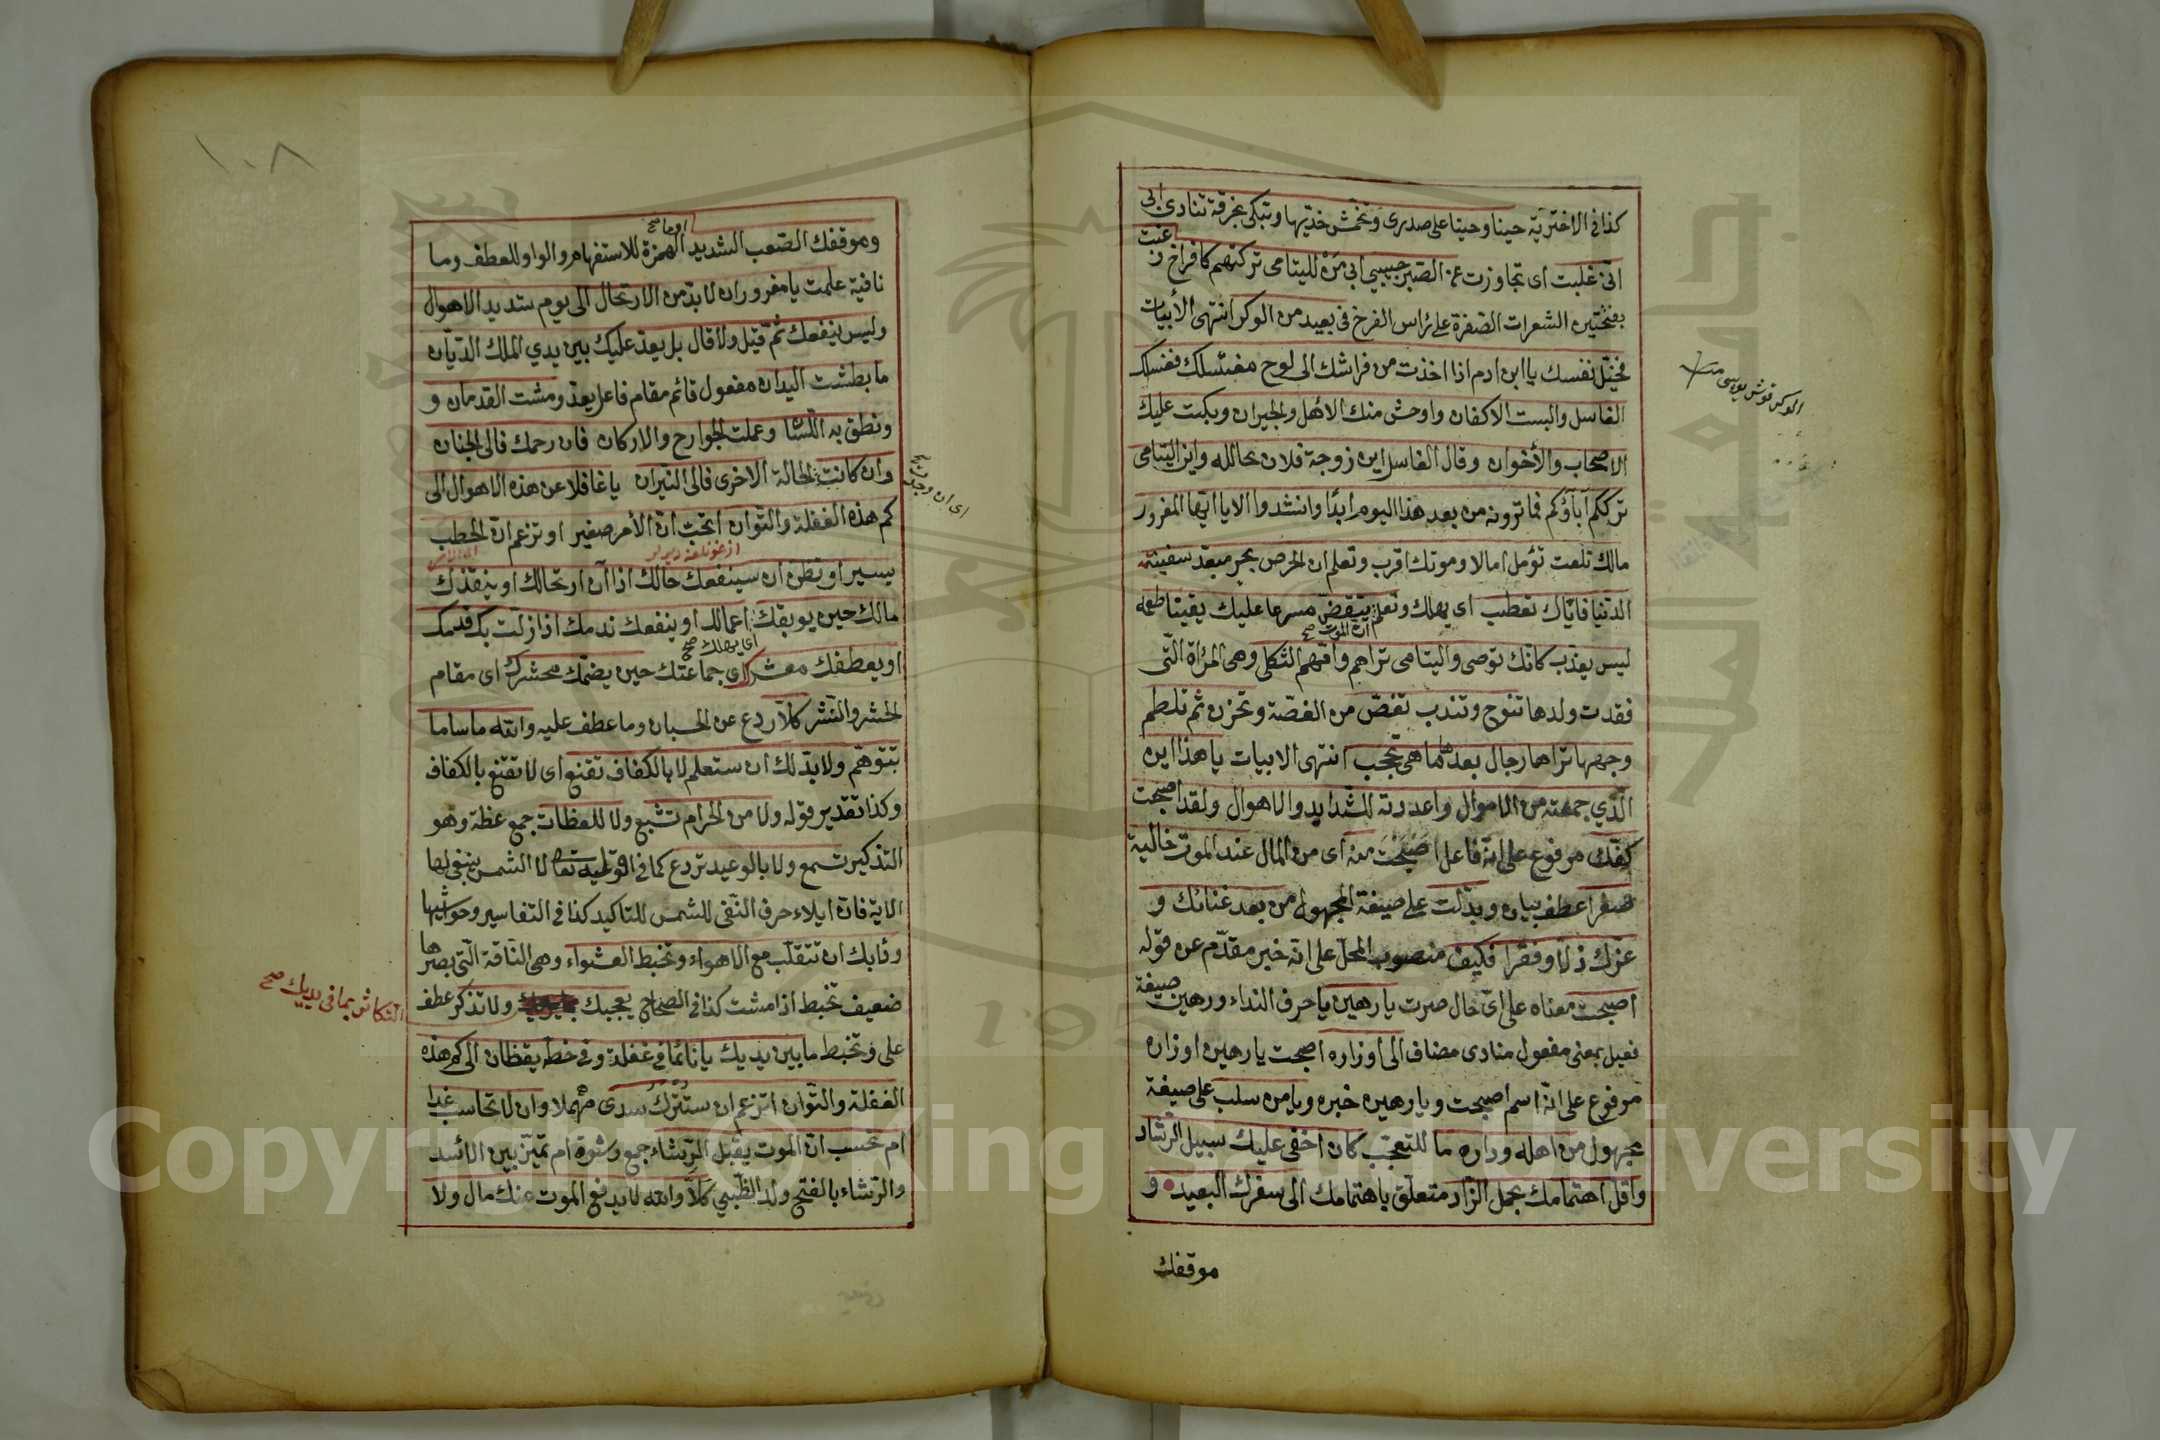 كذا في الاخترية حينا وحينا على صدرى وتخمش خديها وتبكى بحرقة تنادى ابى
انى غلبت اى تجاوزت عن الصبر حبيبي ابى من لليتامى تركتهم كافراخ زغب
بفتحتين الشعرات الصفرة على رأس الفرخ فى بعيد من الوكر انتهى الأبيات
فخيل نفسك يا ابن ادم اذا اخذت من فراشك الى لوح مغتسلك فغسلك
الغاسل والبست الاكفان واوحش منك الاهل والجيران وبكت عليك
الاصحاب والأخوان وقال الغاسل اين زوجة فلان تحالله واين اليتامى
ترككم آباؤكم فما ترونه من بعد هذا اليوم ابدا وانشدوا الا يا ايها المغرور
مالك تلعب تؤمل امالا وموتك اقرب وتعلم ان الحرص بحر مبعد سفينته
الدنيا فاياك تعطب اى يهلك وتعلم ينقض مسرعا عليك يقينا طعمه
ان الموت صح
ليس يعذب كانك توصى واليتامى تراهم وامهم الثكلى وهى المرأة التى
فقدت ولدها تنوح وتندب تغصص من الغصة وتحزن ثم تلطم
وجهها تراها رجال بعد ما هى تحجب انتهى الابيات يا هذا اين
الذي جمعته من الاموال واعددته للشدايد والاهوال ولقد اصبحت
كفك مرفوع على انه فاعل اصبحت منه اى من المال عند الموت خالية
صفرا عطف بيان وبدلت على صيغة المجهول من بعد غنائك و
عزك ذلا وفقرا فكيف منصوب المحل على انه خبر مقدم عن قوله
اصبحت معناه على اى حال صرت يا رهين يا حرف النداء ورهين صيغة
فعيل بمعنى مفعول منادى مضاف الى اوزاره اصبحت يا رهين اوزاره
مرفوع على انه اسم اصبحت ويا رهين خبره ويا من سلب على صيغة
مجهول من اهله وداره ما للتعجب كان اخفى عليك سبيل الرشاد
واقل اهتمامك بحمل الزاد متعلق باهتمامك الى سفرك البعيد و
موقفك
الوكر قوش يوسى
١٠٨
وموقفك الصعب الشديد الهمزة للاستفهام والواو للعطف وما
او ما صح
نافية علمت يا مغرور ان لا بد من الارتحال الى يوم شديد الاهوال
وليس ينفعك ثم قيل ولا قال بل يعد عليك بين يدي الملك الديان
ما بطشت اليدان مفعول قائم مقام فاعل يعد ومشت القدمان و
ونطق به اللسان وعملت الجوارح والاركان فان رحمك فالى الجنان
وان كانت الحالة الاخرى فالى النيران يا غافلا عن هذه الاهوال الى
كم هذه الغفلة والتوان اتحب ان الأمر صغير او تزعم ان الخطب
يسير او تظن ان سينفعك حالك اذا آن ارتحالك او ينقذك
مالك حين يوبقك اعمالك او ينفعك ندمك اذا زلت بك قدمك
اى يهلك صح
او يعطفك معشرك اى جماعتك حين يضمك محشرك اى مقام
الحشر والنشر كلا ردع عن الحسبان وما عطف عليه والله ما ساما
تتوهم ولا بد لك ان ستعلم لا بالكفاف تقنع اى لا تقنع بالكفاف
وكذا تقدير قوله ولا من الحرام تشبع ولا للعظات جمع عظة وهو
التذكير تسمع ولا بالوعيد تردع كما فى قوله تعالى لا الشمس ينبغى لها
الاية فان ايلاء حرف النفى للشمس للتاكيد كذا فى التفاسير وحواشيها
ودابك ان تتقلب مع الاهواء وتخبط العشواء وهى الناقة التى بصرها
ضعيف تخبط اذا مشت كذا فى الصحاح يعجبك ولا تذكر عطف
التكاثر بما فى يديك صح
على وتخبط ما بين يديك يا نائما فى غفلة وفى خطة يقظان الى كم هذه
الغفلة والتوان اتزعم ان ستترك سدى مهملا وان لا تحاسب غدا
ام تحسب ان الموت يقبل الرشاء جمع رشوة ام تميز بين الأسد
والرشاء بالفتح ولد الظبي كلا والله لا يدفع الموت عنك مال ولا